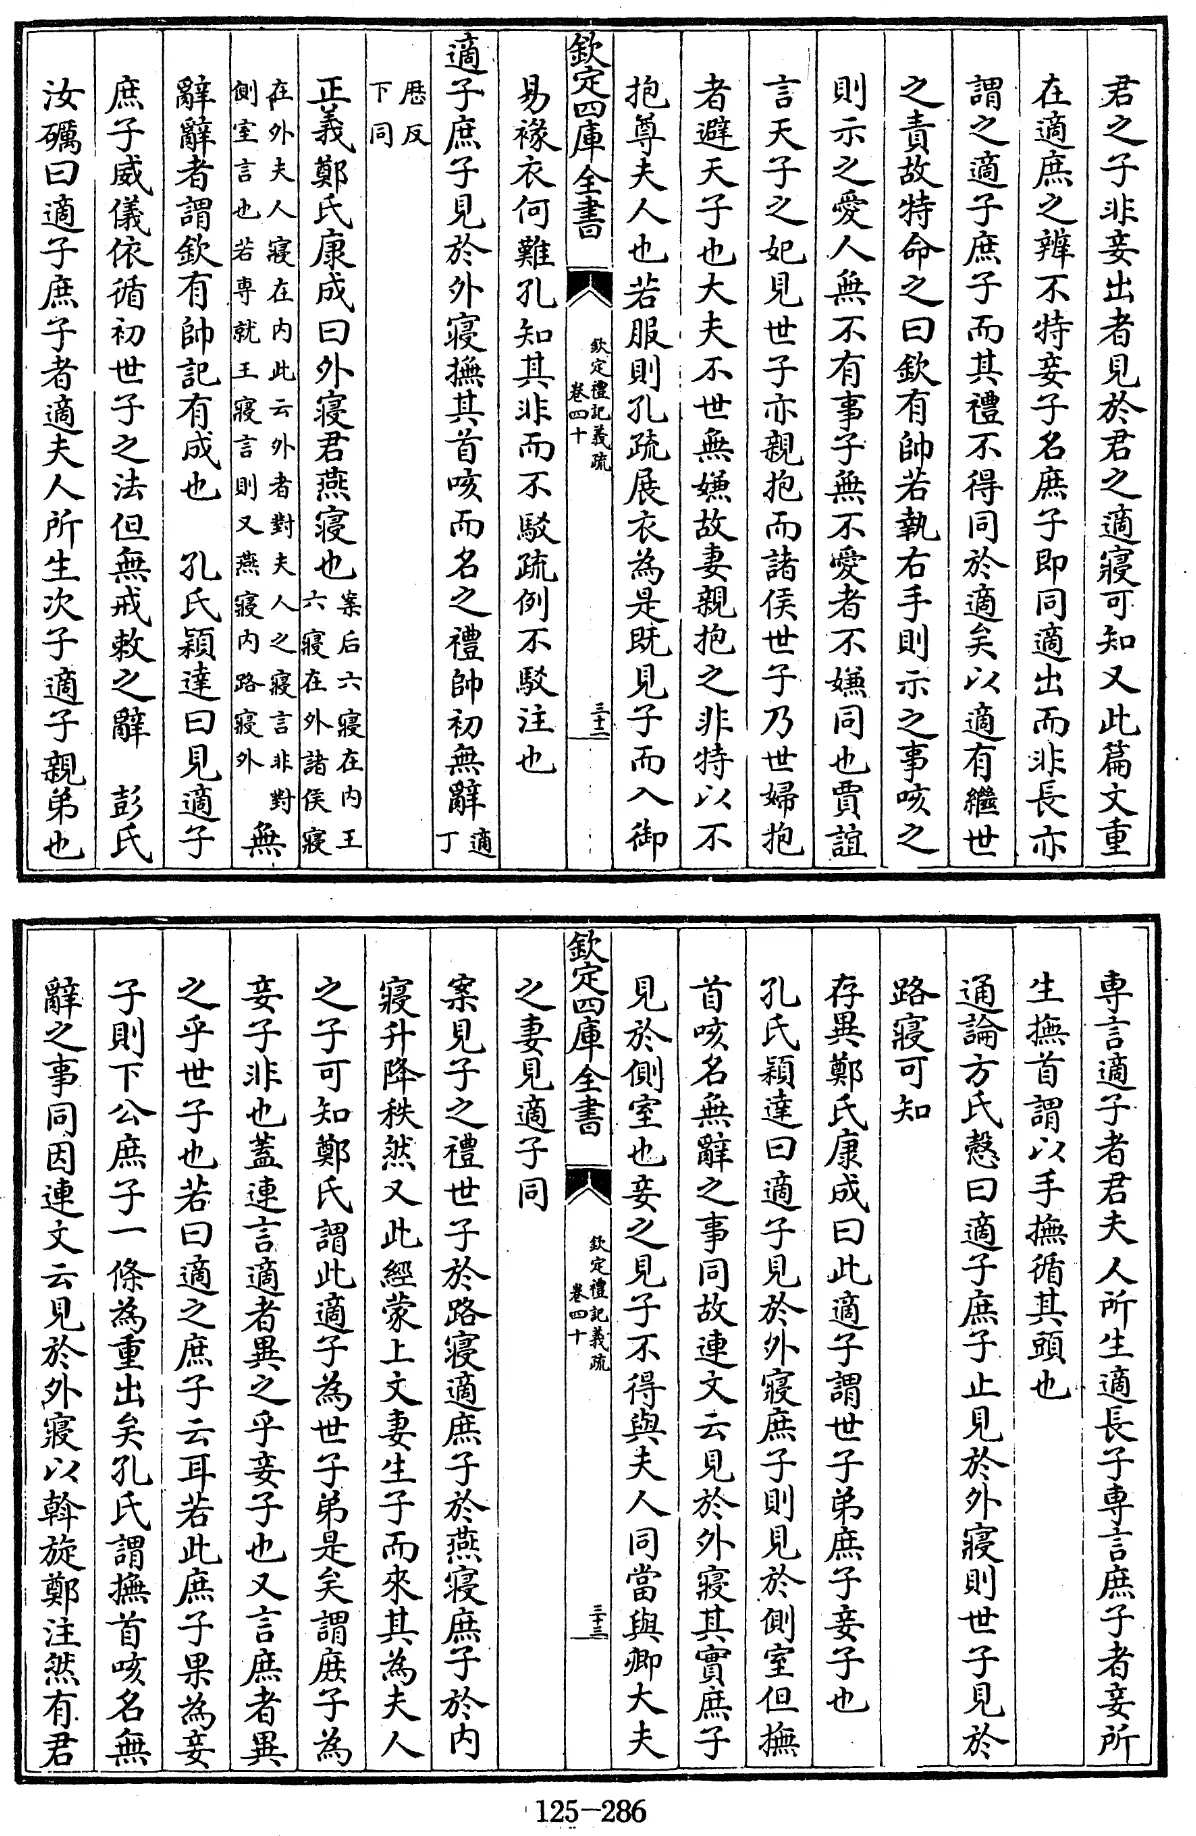 君之子非妾出者見於君之適寢可知又此篇文重
在適庶之辨不特妾子名庶子即同適出而非長亦
謂之適子庶子而其禮不得同於適矣以適有繼世
之責故特命之曰欽有帥若執右手則示之事咳之
則示之愛人無不有事子無不愛者不嫌同也賈誼
言天子之妃見世子亦親抱而諸侯世子乃世婦抱
者避天子也大夫不世無嫌故妻親抱之非特以不
抱尊夫人也若服則孔疏展衣為是既見子而入御
欽定四庫全書
欽定禮記義疏
卷四十
三十二
易褖衣何難孔知其非而不駁疏例不駁注也
適子庶子見於外寢撫其首咳而名之禮帥初無辭
適
丁
歷反
下同
正義鄭氏康成曰外寢君燕寢也
案后六寢在內王
六寢在外諸侯寢
在外夫人寢在內此云外者對夫人之寢言非對
側室言也若專就王寢言則又燕寢內路寢外
無
辭辭者謂欽有帥記有成也　孔氏穎達曰見適子
庶子威儀依循初世子之法但無戒敕之辭　彭氏
汝礪曰適子庶子者適夫人所生次子適子親弟也
專言適子者君夫人所生適長子專言庶子者妾所
生撫首謂以手撫循其頭也
通論方氏慤曰適子庶子止見於外寢則世子見於
路寢可知
存異鄭氏康成曰此適子謂世子弟庶子妾子也
孔氏穎達曰適子見於外寢庶子則見於側室但撫
首咳名無辭之事同故連文云見於外寢其實庶子
見於側室也妾之見子不得與夫人同當與卿大夫
欽定四庫全書
欽定禮記義疏
卷四十
三十三
之妻見適子同
案見子之禮世子於路寢適庶子於燕寢庶子於內
寢升降秩然又此經蒙上文妻生子而來其為夫人
之子可知鄭氏謂此適子為世子弟是矣謂庶子為
妾子非也蓋連言適者異之乎妾子也又言庶者異
之乎世子也若曰適之庶子云耳若此庶子果為妾
子則下公庶子一條為重出矣孔氏謂撫首咳名無
辭之事同因連文云見於外寢以斡旋鄭注然有君
125-286